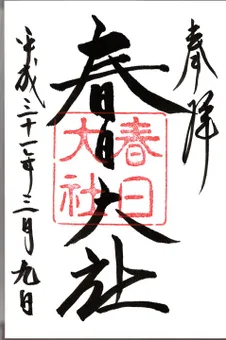 奉拝
春日大社
春日大社
平成三十一年三月九日